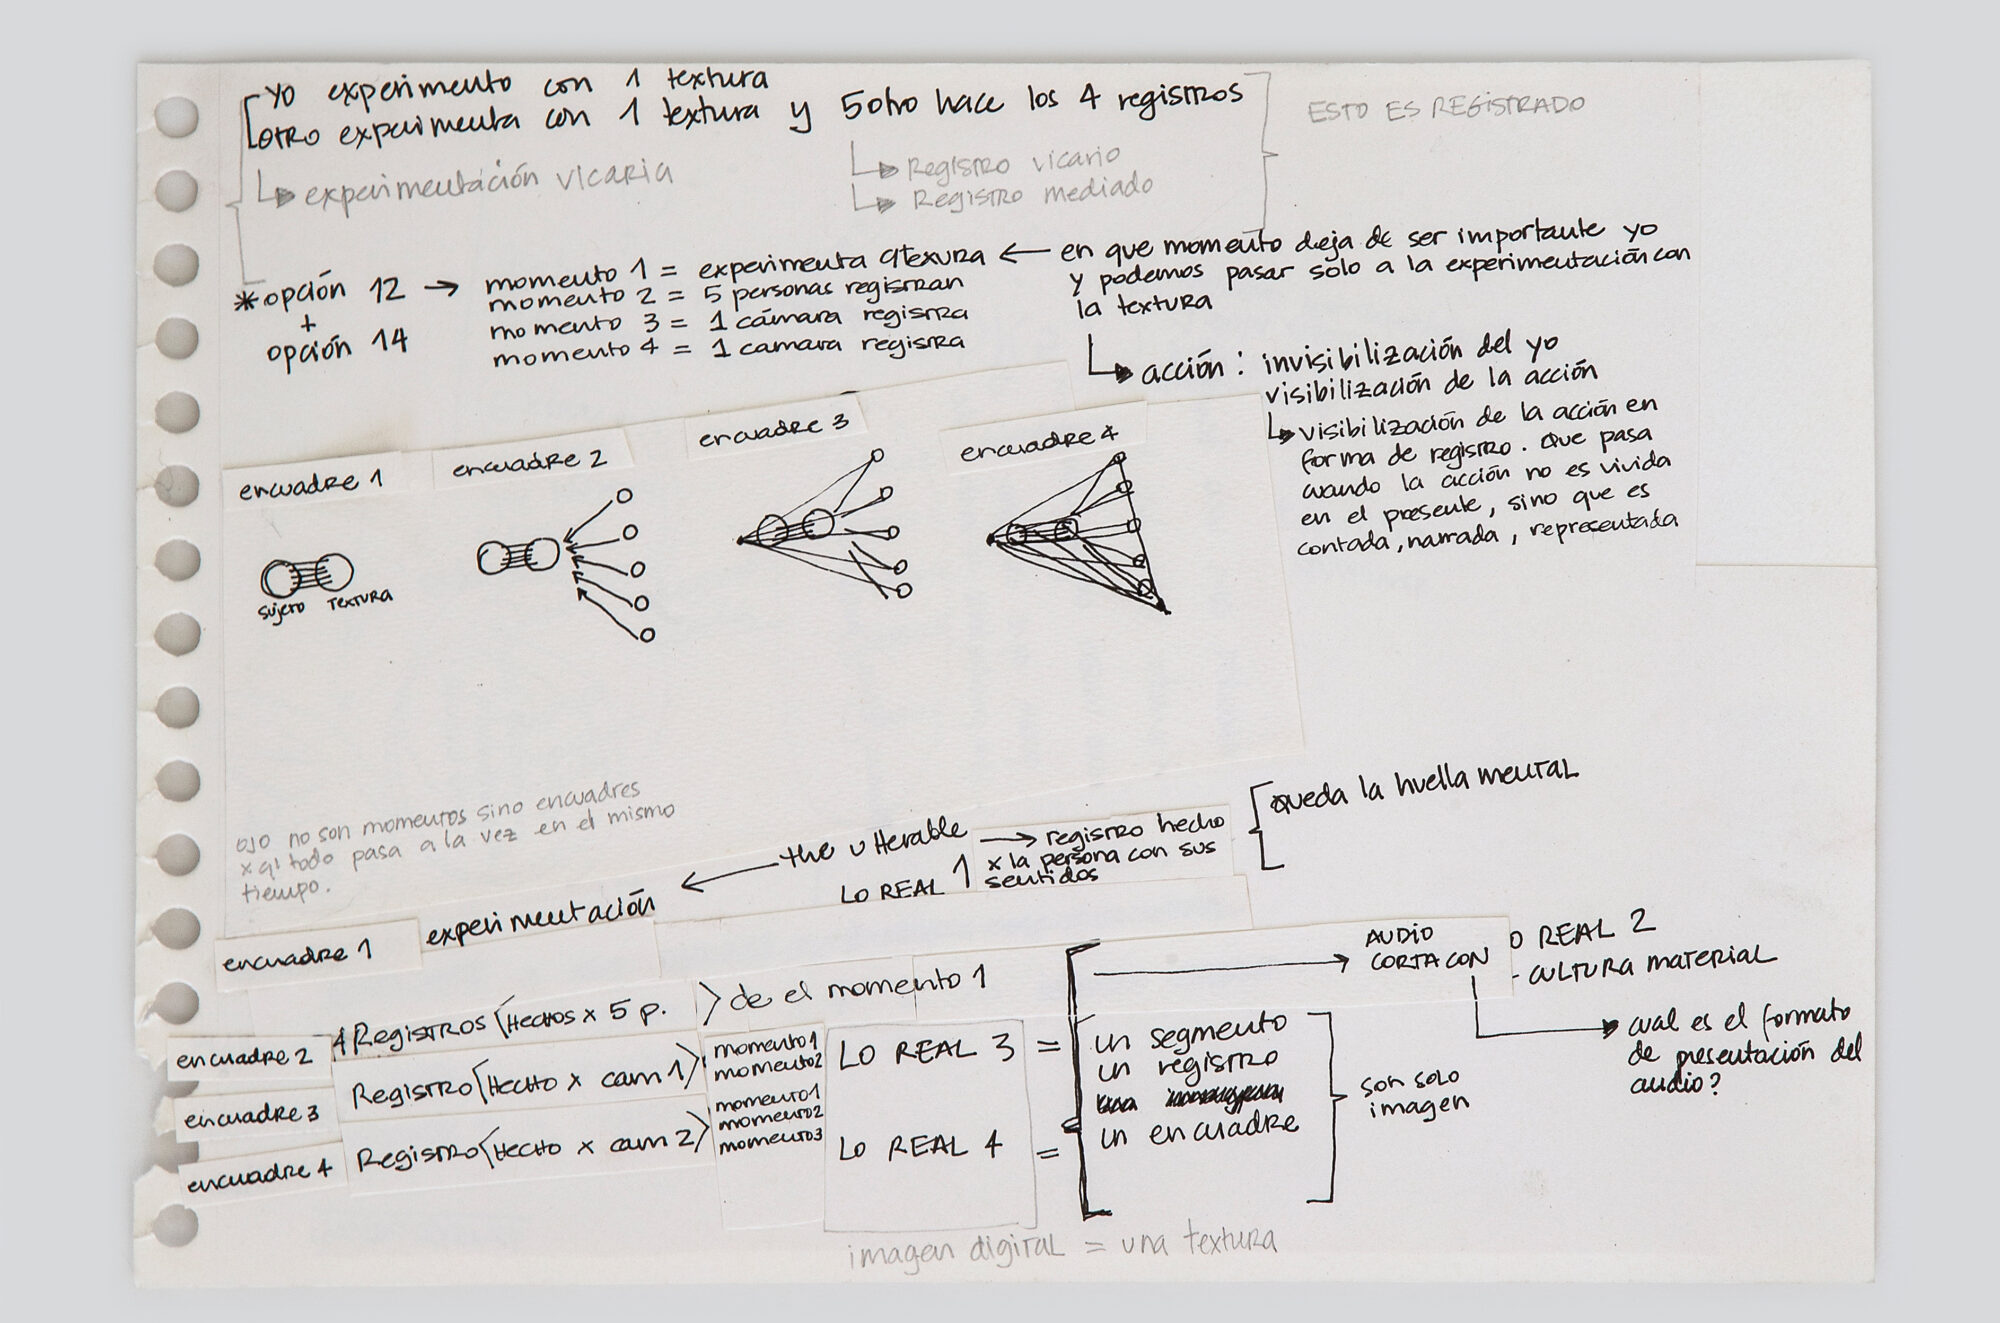 Yo experimento con 1 textura
OTRO experimenta con 1 textura y 5 otro hace los 4 registros
ESTO ES REGISTRADO
experimentación vicaria
Registro vicario
Registro mediado
*opción 12 → momento 1 = experimenta
+
opción 14
momento 2 = 5 personas registran
momento 3 = 1 cámara registra
momento 4 = 1 camara registra
← en que momento deja de ser importante yo
y podemos pasar solo a la experimentación con
la textura
acción: invisibilización del yo
visibilización de la acción
visibilización de la acción en
forma de registro. Que pasa
cuando la acción no es vivida
en el presente, sino que es
contada, narrada, representada
encuadre 1
encuadre 2
encuadre 3
encuadre 4
sujeto textura
OJO no son momentos sino encuadres
x q' todo pasa a la vez en el mismo
tiempo.
the utterable → registro hecho
LO REAL 1 x la persona con sus
sentidos
queda la huella mental
encuadre 1 experimentación
AUDIO
CORTA CON
O REAL 2
- CULTURA MATERIAL
cual es el formato
de presentación del
audio?
encuadre 2 4 Registros (Hechos x 5 p.) de el momento 1
encuadre 3 Registro (Hecho x cam 1) momento1
momento2
encuadre 4 Registro (Hecho x cam 2) momento1
momento2
momento3
LO REAL 3 =
LO REAL 4 =
un segmento
un registro
un encuadre
son solo
imagen
imagen digital = una textura